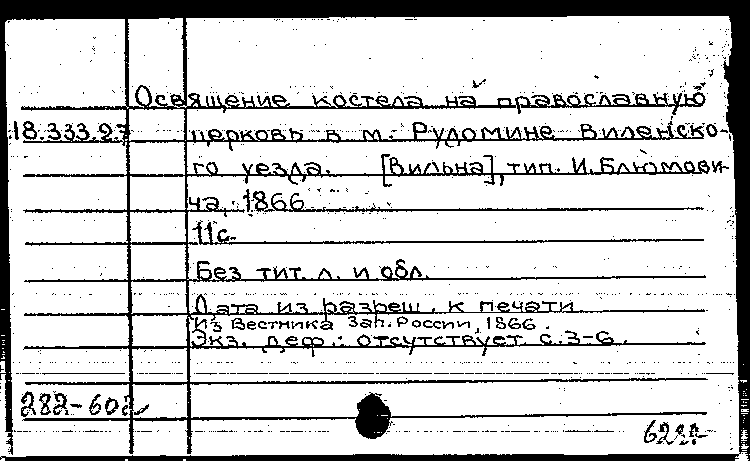 Освящение костела на православную
18.333.27 церковь в м. Рудомине Виленско-
го уезда. [Вильна], тип. И. Блюмови-
ча, 1866
11с.
Без тит. л. и обл.
Дата из разреш. к печати
Из Вестника Зап. России, 1866.
Экз. деф.: отсутствует с. 3-6.
282-602